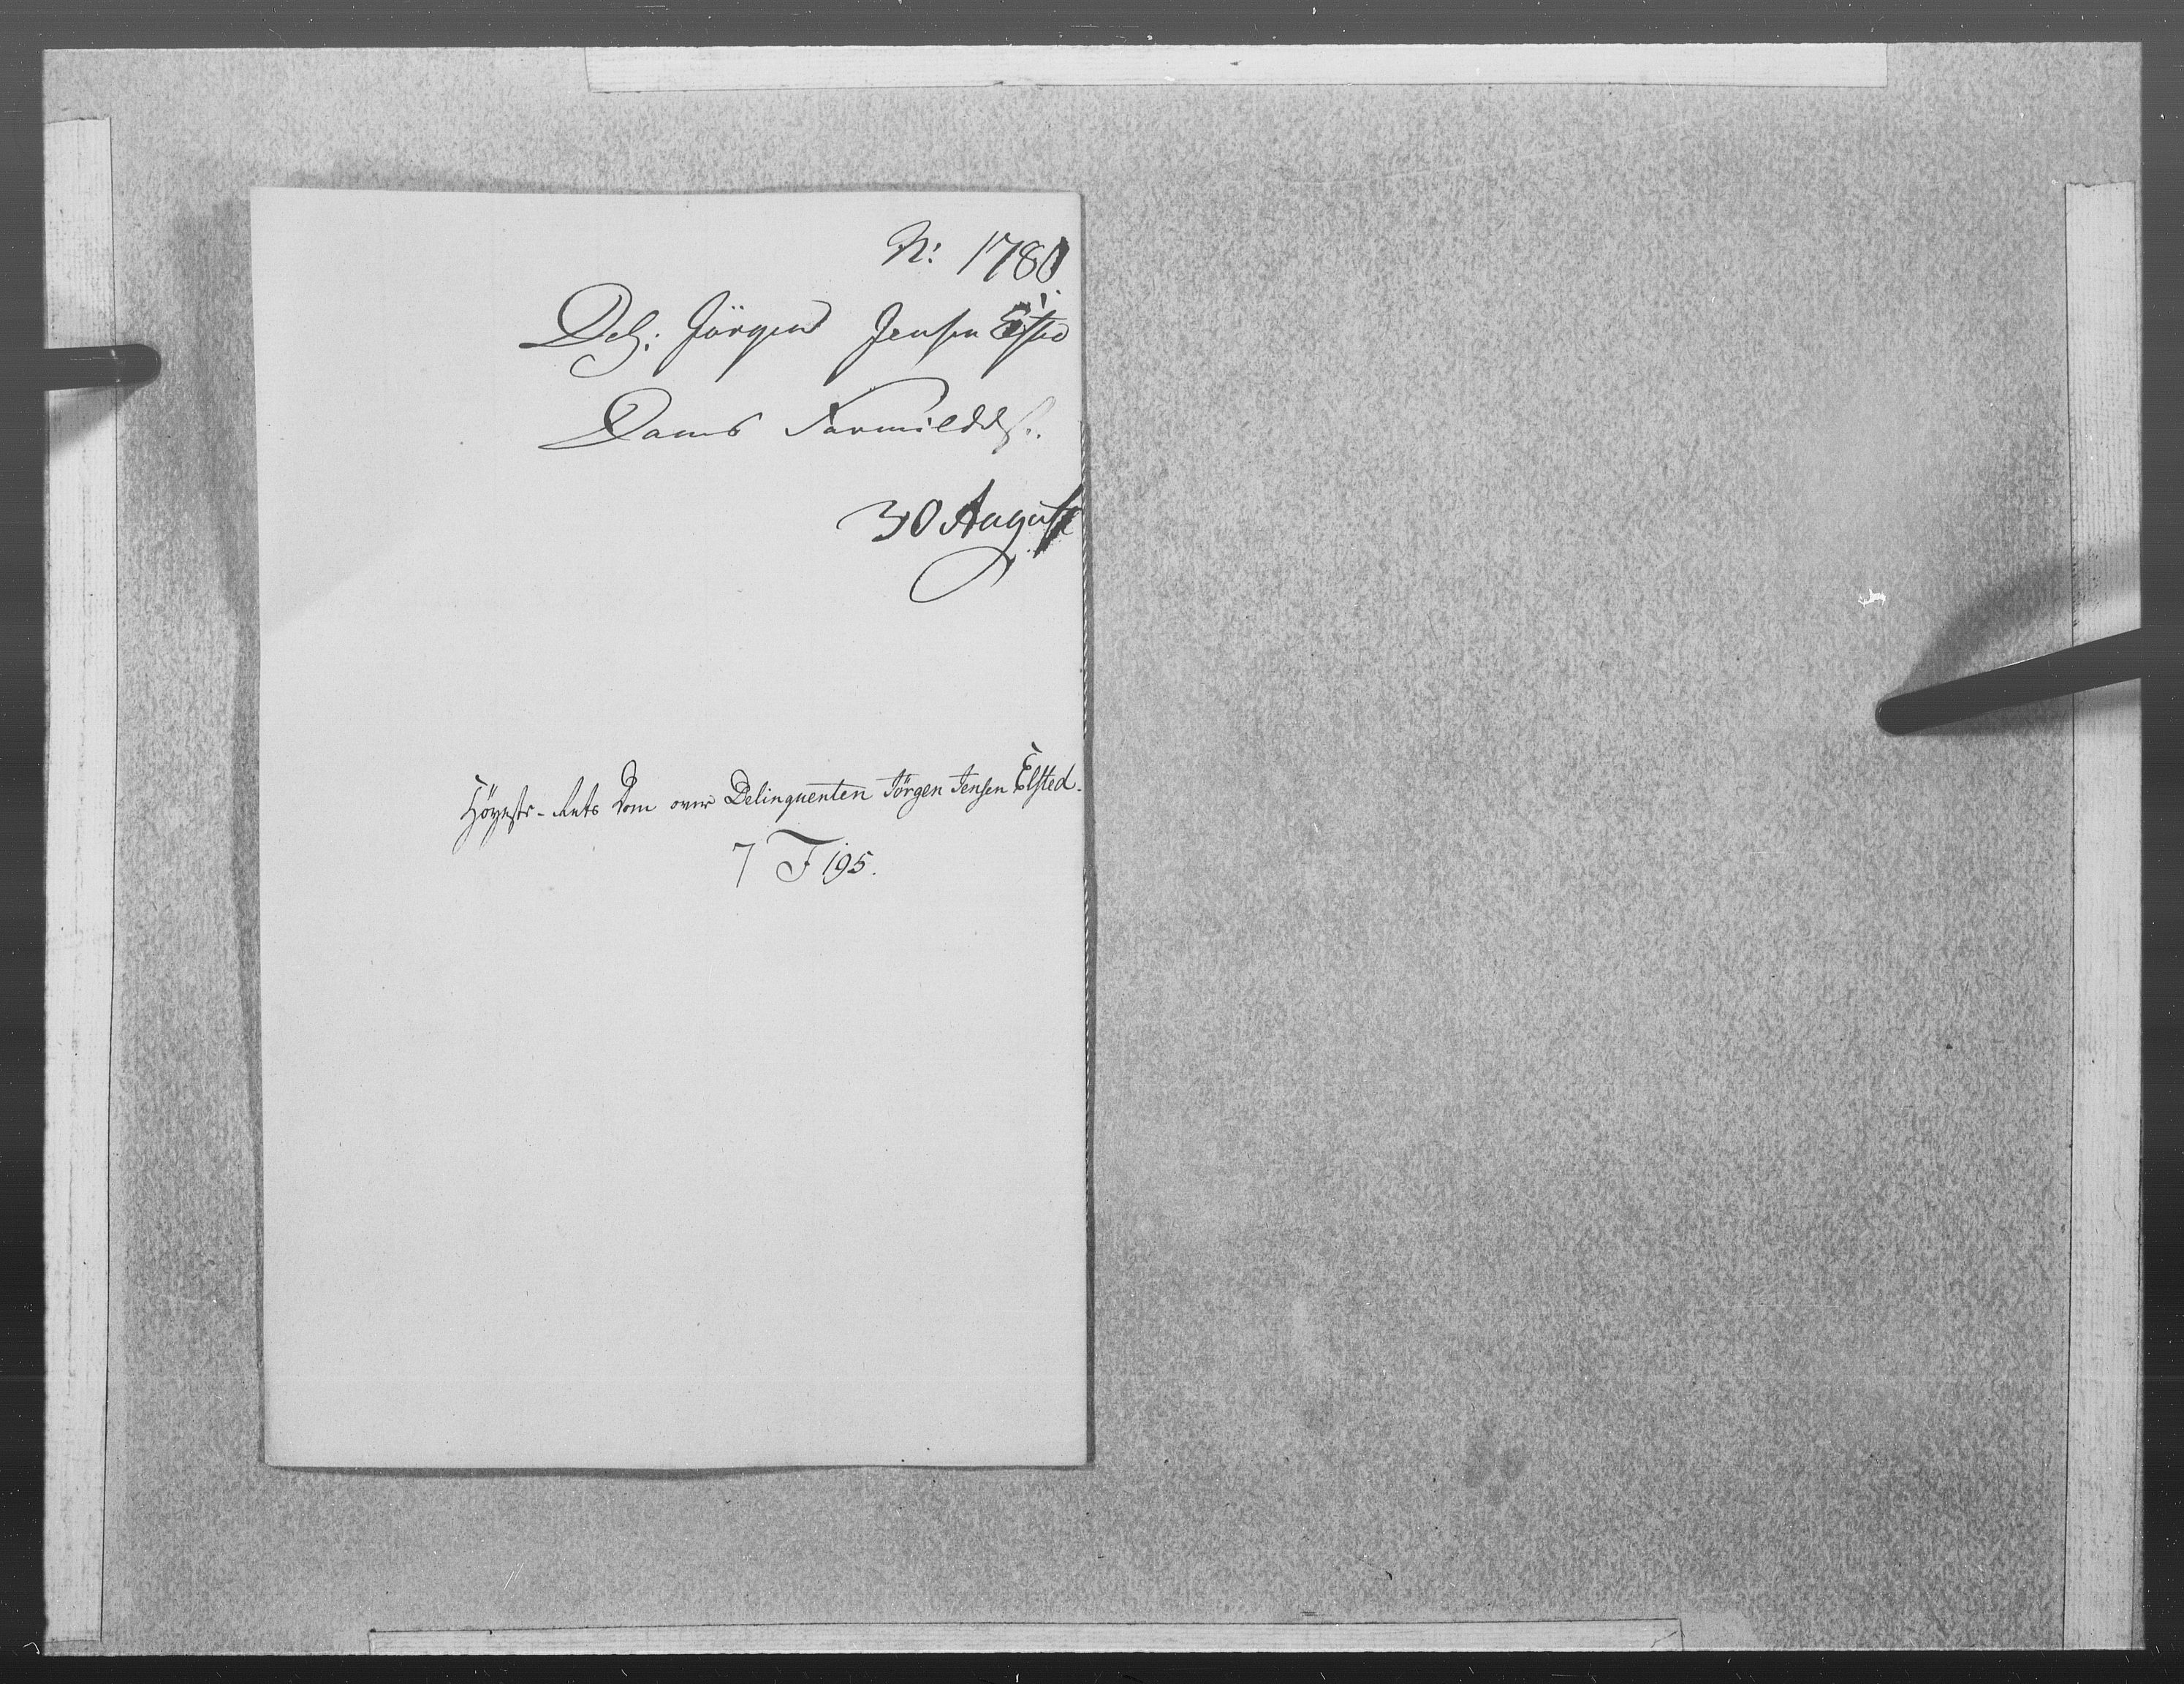 N: 1780
Del: Jørgen Jensen Elsted
Doms Formildelse.
30 August
Höyeste-Rets Dom over Delinquenten Jörgen Jensen Elsted.
7 F 195.